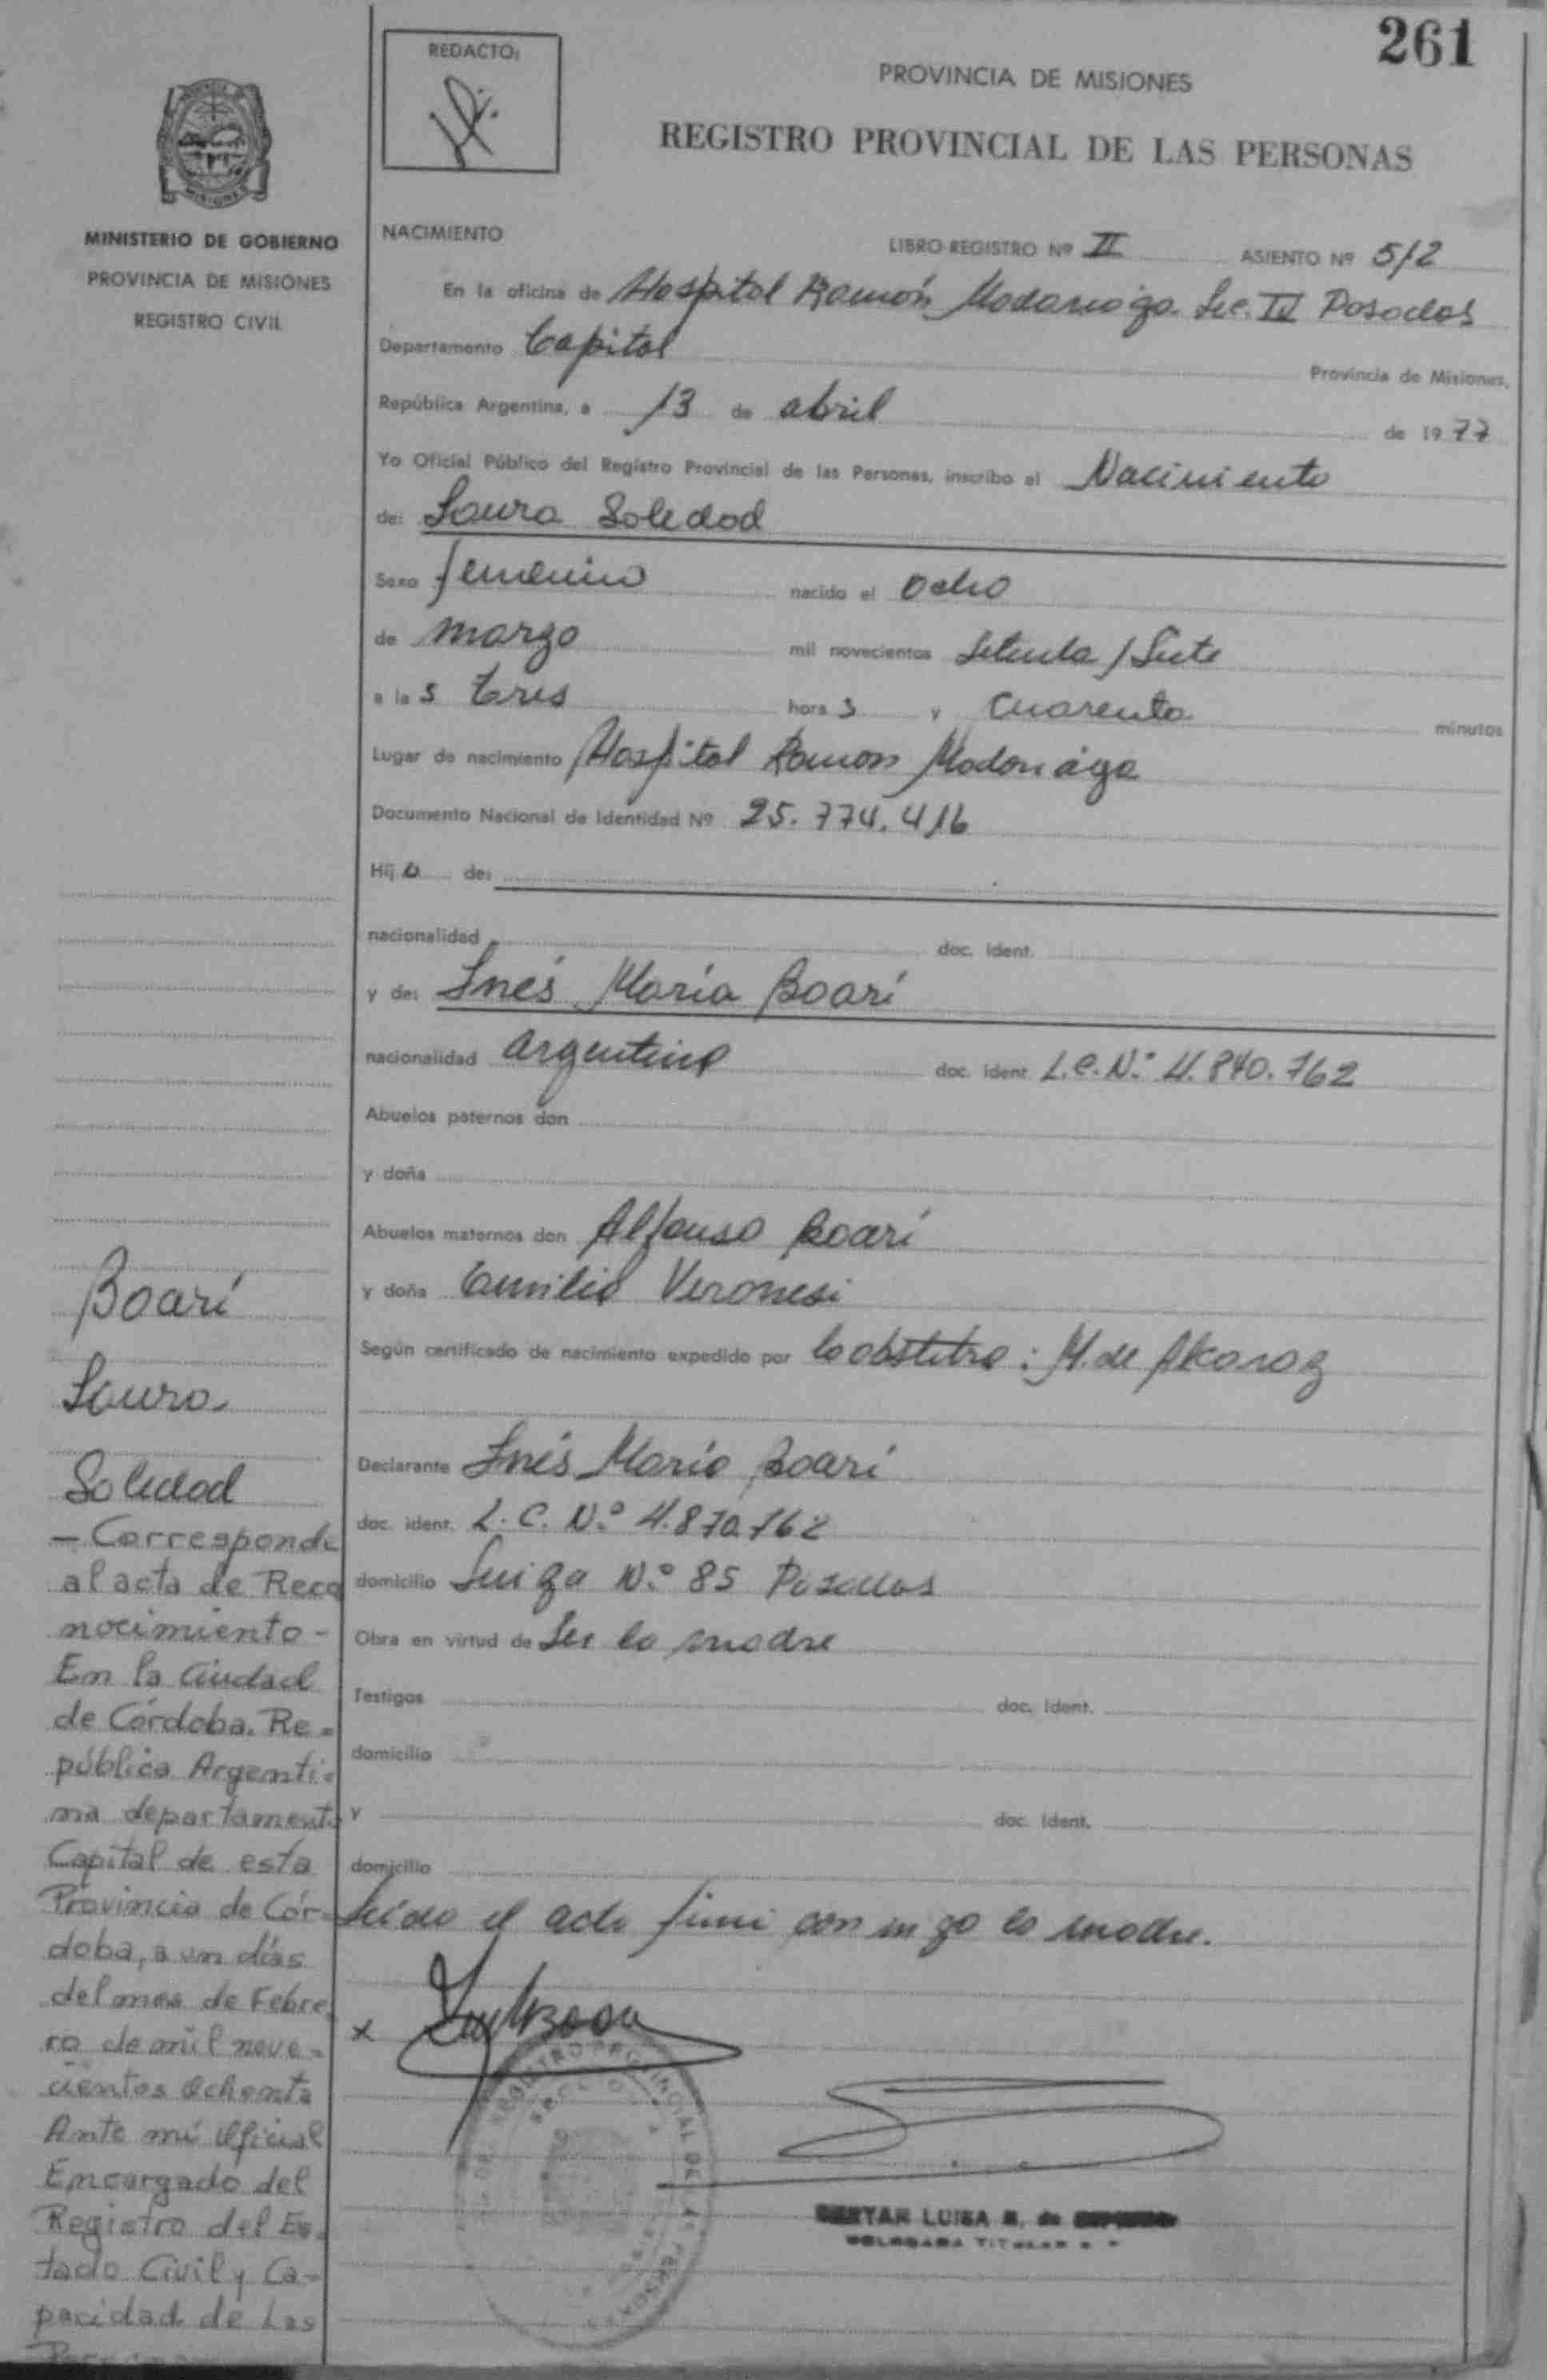 261
REDACTO:
PROVINCIA DE MISIONES
REGISTRO PROVINCIAL DE LAS PERSONAS
MISIONES
MINISTERIO DE GOBIERNO
PROVINCIA DE MISIONES
REGISTRO CIVIL
NACIMIENTO LIBRO-REGISTRO Nº II ASIENTO Nº 512
En la oficina de Hospital Ramón Madariaga. Sec. Posadas
Departamento Capital Provincia de Misiones,
República Argentina, a 13 de abril de 1977
Yo Oficial Público del Registro Provincial de las Personas, inscribo el Nacimiento
de: Laura Soledad
Sexo femenino nacido el ocho
de marzo mil novecientos setenta/siete
a las tres horas y cuarenta minutos
Lugar de nacimiento Hospital Ramon Madariaga
Documento Nacional de Identidad Nº 25.774.416
Hija de:
nacionalidad doc. ident.
y de: Inés María Boari
nacionalidad argentina doc. ident. L.C.Nº 4.840.762
Abuelos paternos don
y doña
Abuelos maternos don Alfonso Boari
y doña Emilia Veronesi
Según certificado de nacimiento expedido por la obstetra: M. de Alcaraz
Declarante Inés María Boari
doc. ident. L.C. Nº 4.870.762
domicilio Suiza Nº 85 Posadas
Obra en virtud de ser la madre
Testigos doc. Ident.
domicilio
y doc. Ident.
domicilio
Leída el acta firma con migo la madre.
x
REGISTRO PROVINCIAL DE LAS PERSONAS
LUISA
Boari
Laura
Soledad
— Corresponde
al acta de Reco
nocimiento -
En la Ciudad
de Córdoba. Re=
pública Argenti=
na departamento
Capital de esta
Provincia de Cór-
doba, a un días
del mes de Febre
ro de mil nove=
cientos ochenta
Ante mí Oficial
Encargado del
Registro del Es=
tado Civil y Ca=
pacidad de Las